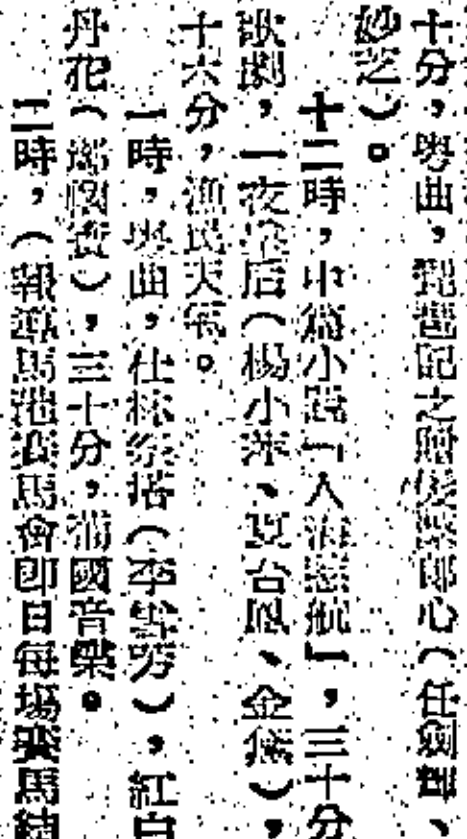 十分，粵曲，琵琶記之贈髮繫郎心（任劍輝、
妙芝）。
十二時，中篇小說「人海慈航」，三十分
歌劇，一夜皇后（楊小萍、夏台鳳、金燕），
十六分，漁民天氣。
一時，粵曲，仕林祭塔（李雪芳），紅白
丹花（鄧國）），三十分，滿國音樂。
二時，（報導馬港賽馬會即日每場賽馬